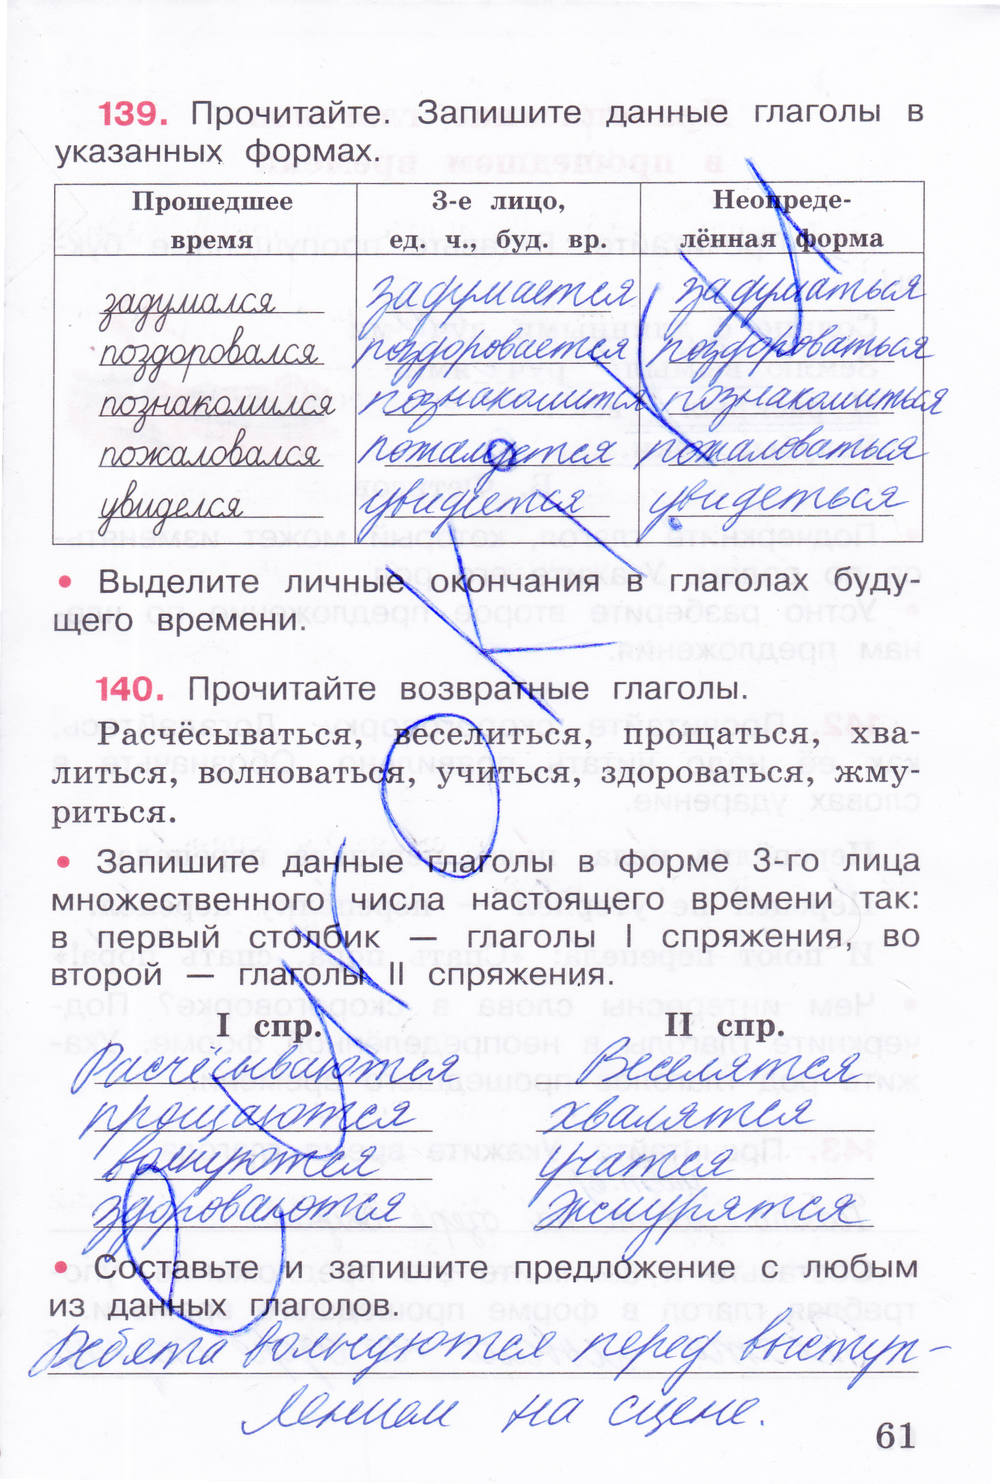 139. Прочитайте. Запишите данные глаголы в
указанных формах.
Прошедшее время 3-е лицо, ед. ч., буд. вр. Неопреде-лённая форма
задумался задумается задуматься
поздоровался поздоровается поздороваться
познакомился познакомится познакомиться
пожаловался пожалуется пожаловаться
увиделся увидется увидеться
• Выделите личные окончания в глаголах буду-
щего времени.
140. Прочитайте возвратные глаголы.
Расчёсываться, веселиться, прощаться, хва-
литься, волноваться, учиться, здороваться, жму-
риться.
• Запишите данные глаголы в форме 3-го лица
множественного числа настоящего времени так:
в первый столбик — глаголы I спряжения, во
второй — глаголы II спряжения.
I спр. II спр.
Расчёсываются Веселятся
прощаются хвалятся
волнуются учатся
здороваются жмурятся
• Составьте и запишите предложение с любым
из данных глаголов.
Ребята волнуются перед выступ-
лением на сцене.
61